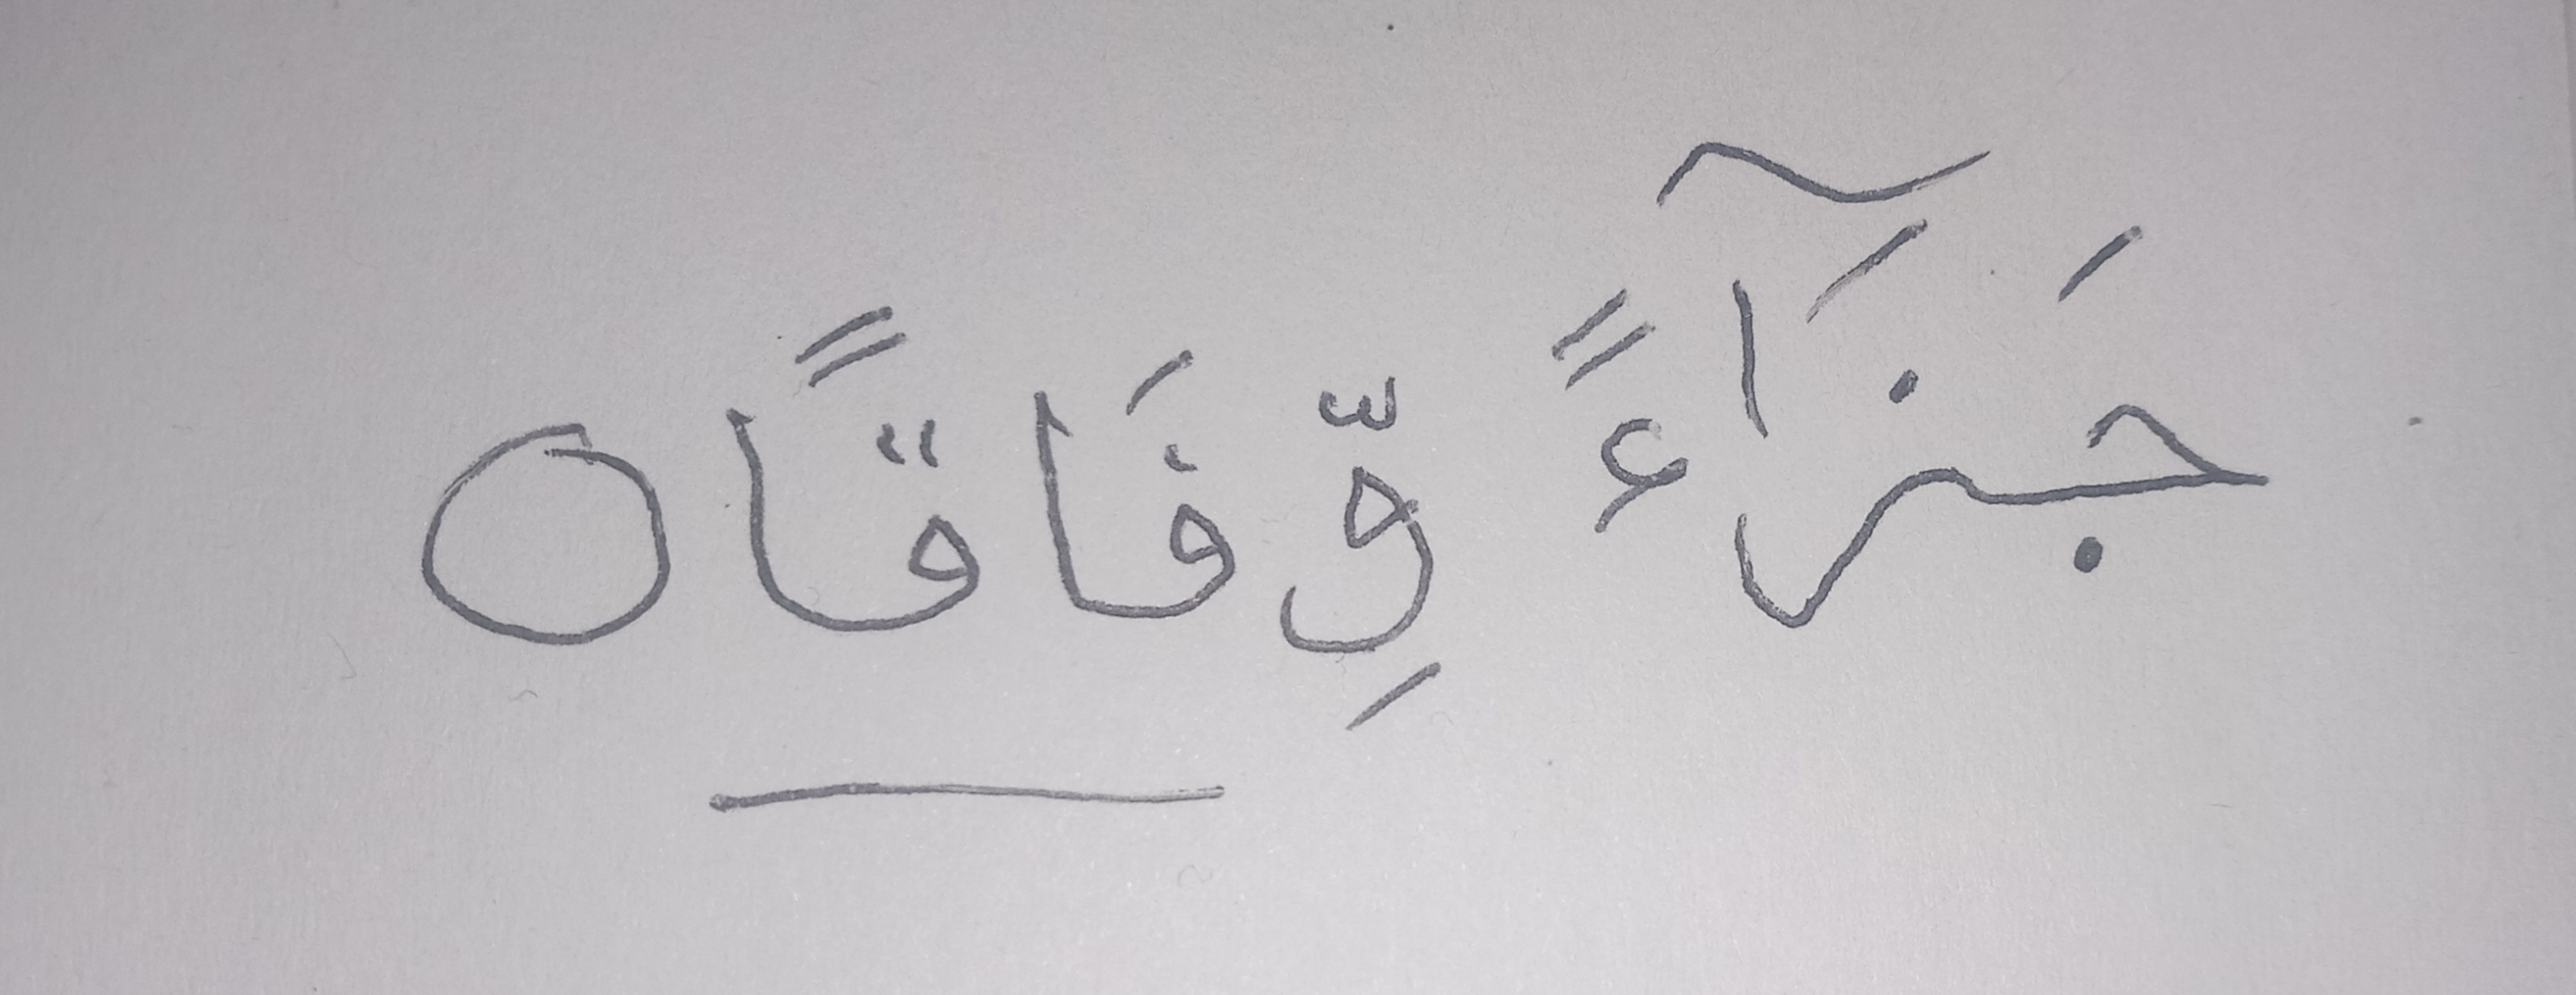 جَزَآءً وِّفَاقًا ○